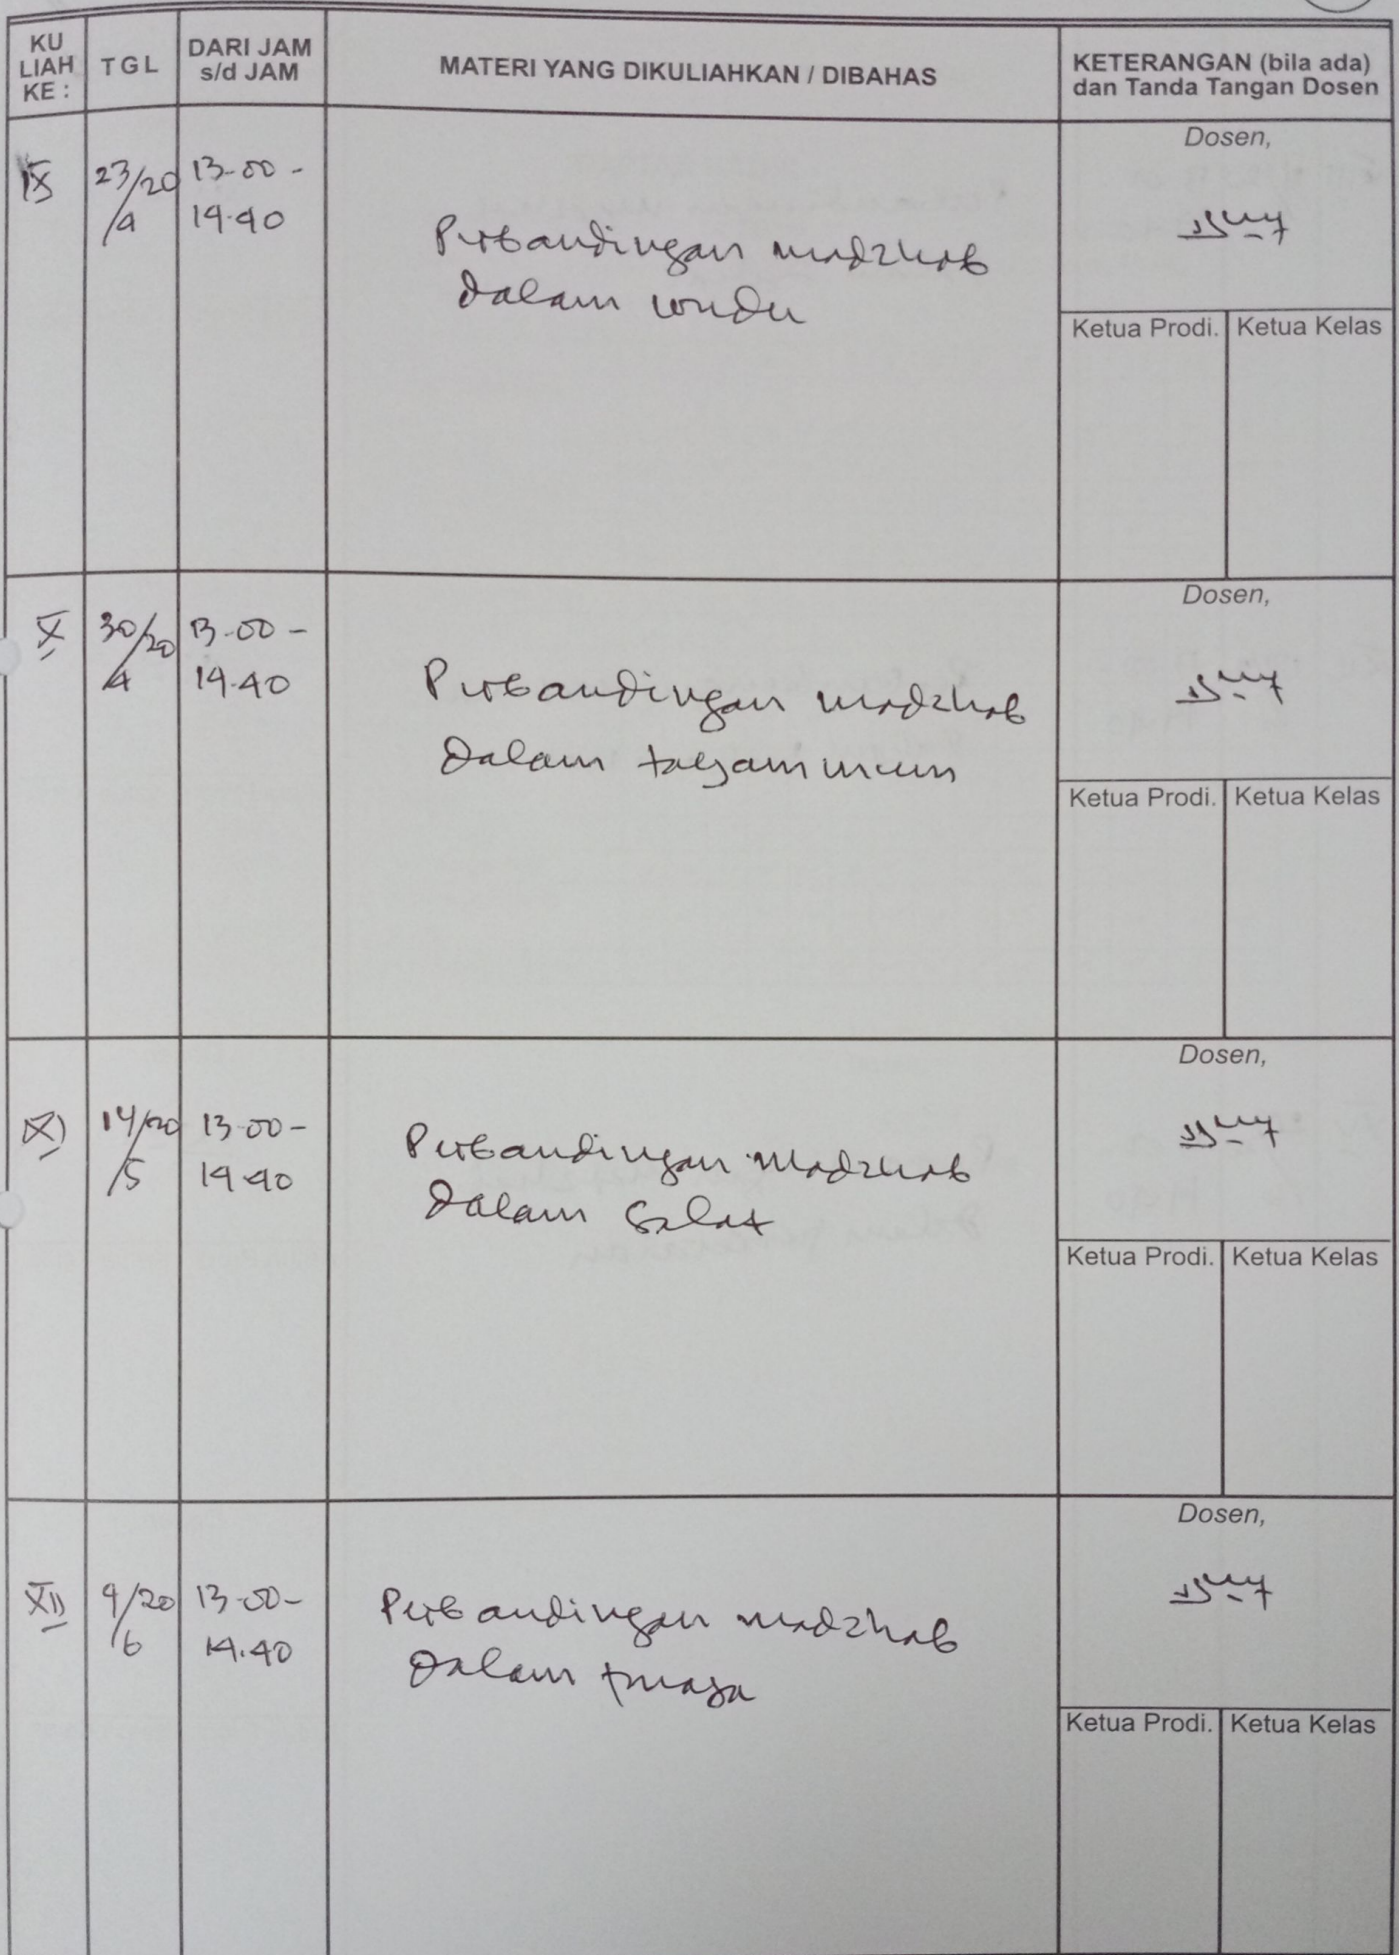 KU
LIAH
KE :
TGL
DARI JAM
s/d JAM
MATERI YANG DIKULIAHKAN / DIBAHAS
KETERANGAN (bila ada)
dan Tanda Tangan Dosen
IX
23/20
/4
13-00 -
14.40
Perbandingan madzhab
dalam wudu
Dosen,
Ketua Prodi. Ketua Kelas
X
30/20
/4
13-00 -
14.40
Perbandingan madzhab
dalam tayammum
Dosen,
Ketua Prodi. Ketua Kelas
XI
14/20
/5
13-00 -
14.40
Perbandingan madzhab
dalam Salat
Dosen,
Ketua Prodi. Ketua Kelas
XII
4/20
/6
13-00 -
14.40
Perbandingan madzhab
dalam puasa
Dosen,
Ketua Prodi. Ketua Kelas